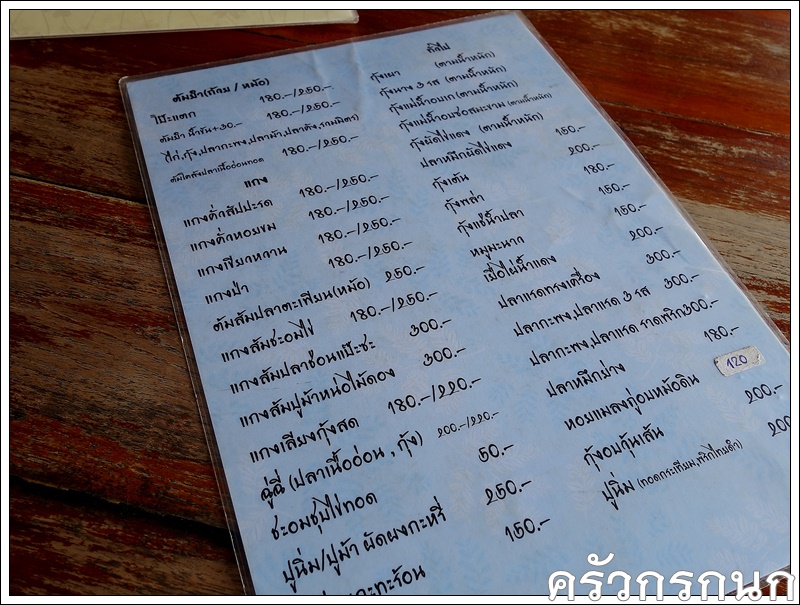 ต้มยำ(ถ้วย / หม้อ)
โป๊ะแตก 180.-/250.-
ต้มยำ น้ำข้น+30.- 180.-/250.-
ไก่,กุ้ง,ปลากะพง,ปลาม้า,ปลาคัง,รวมมิตร)
ต้มโคล้งปลาเนื้ออ่อนทอด 180.-/250.-
แกง
แกงคั่วสัปปะรด 180.-/250.-
แกงคั่วหอยขม 180.-/250.-
แกงเขียวหวาน 180.-/250.-
แกงป่า 180.-/250.-
ต้มส้มปลาตะเพียน(หม้อ) 250.-
แกงส้มชะอมไข่ 180.-/250.-
แกงส้มปลาช่อนแป๊ะซะ 300.-
แกงส้มปูม้าหน่อไม้ดอง 300.-
แกงเลียงกุ้งสด 180.-/220.-
ฉู่ฉี่ (ปลาเนื้ออ่อน , กุ้ง) 200.-/220.-
ชะอมชุบไข่ทอด 50.-
ปูนิ่ม/ปูม้า ผัดผงกะหรี่ 250.-
กะทะร้อน 150.-
ทั่วไป
กุ้งเผา (ตามน้ำหนัก)
กุ้งนาง 3 รส (ตามน้ำหนัก)
กุ้งแม่น้ำอบเกลือ(ตามน้ำหนัก)
กุ้งแม่น้ำอบซอสมะขาม(ตามน้ำหนัก)
กุ้งผัดไข่แดง (ตามน้ำหนัก)
ปลาหมึกผัดไข่แดง 150.-
กุ้งเต้น 200.-
กุ้งพล่า 180.-
กุ้งแช่น้ำปลา 150.-
หมูมะนาว 150.-
เยื่อไผ่น้ำแดง 200.-
ปลาแรดทรงเครื่อง 300.-
ปลากะพง,ปลาแรด 3 รส 300.-
ปลากะพง,ปลาแรด ราดพริก300.-
ปลาหมึกย่าง 180.-
หอยแมลงภู่อบหม้อดิน 120
กุ้งอบวุ้นเส้น 200.-
ปูนิ่ม (ทอดกระเทียม,พริกไทยดำ) 200
ครัวกรกนก